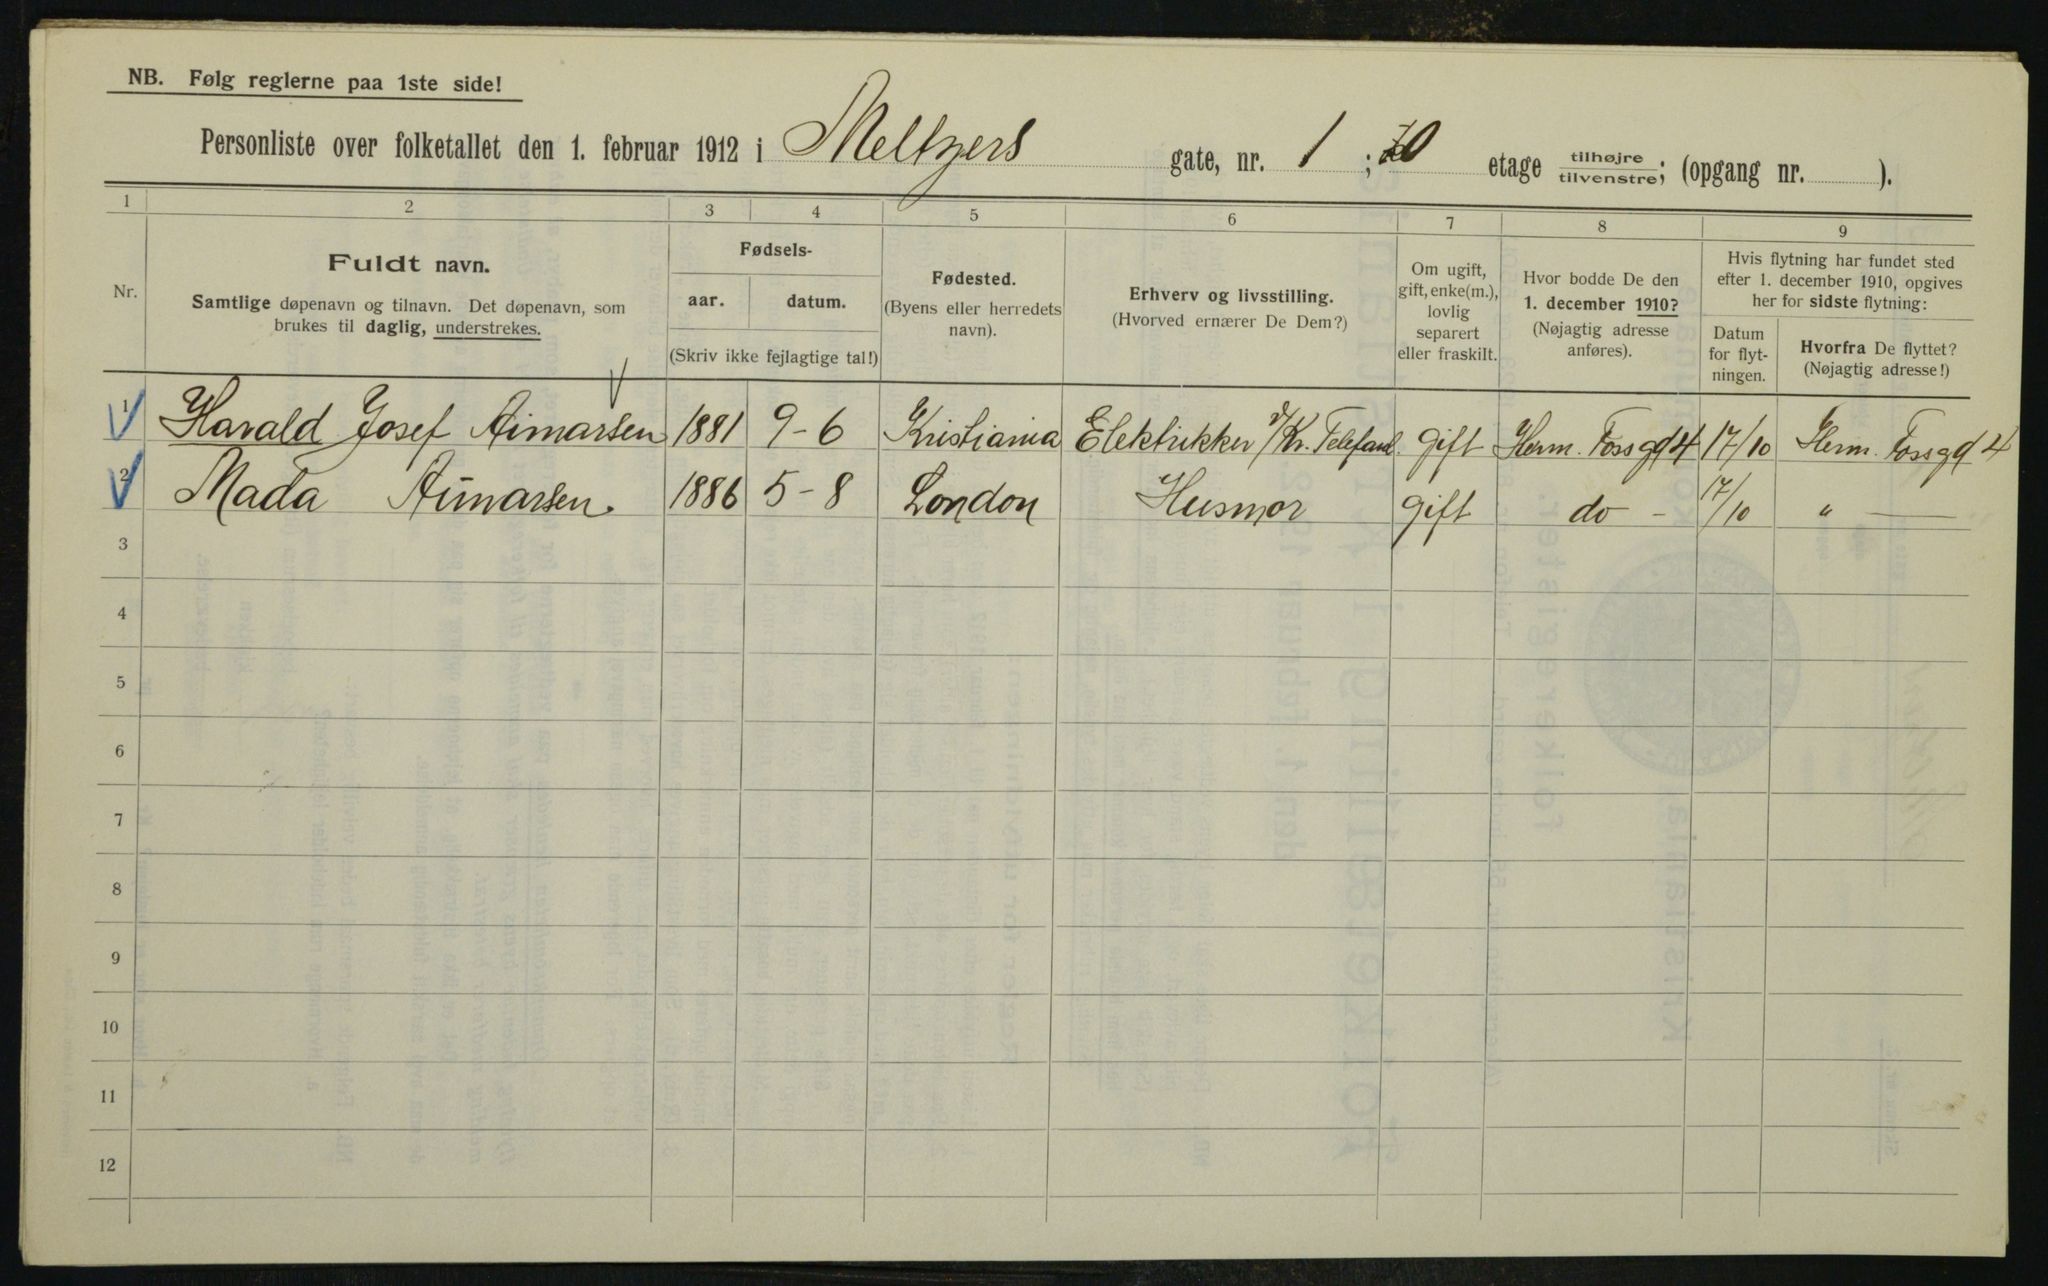 NB. Følg reglerne paa 1ste side!
Personliste over folketallet den 1. februar 1912 i Meltzers gate, nr. 1 ; 0 etage tilhøjre tilvenstre; (opgang nr. ).
1 2 3 4 5 6 7 8 9
Nr.
Fuldt navn.
Samtlige døpenavn og tilnavn. Det døpenavn, som
brukes til daglig, understrekes.
Fødsels-
aar. datum.
(Skriv ikke fejlagtige tal!)
Fødested.
(Byens eller herredets
navn).
Erhverv og livsstilling.
(Hvorved ernærer De Dem?)
Om ugift,
gift, enke(m.),
lovlig
separert
eller fraskilt.
Hvor bodde De den
1. december 1910?
(Nøjagtig adresse
anføres).
Hvis flytning har fundet sted
efter 1. december 1910, opgives
her for sidste flytning:
Datum
for flyt-
ningen.
Hvorfra De flyttet?
(Nøjagtig adresse!)
1 Harald Josef Aimarsen 1881 9-6 Kristiania Elektrikker v/Kr. Telefanl. gift Herm. Foss gd 4 17/10 Herm. Foss gd 4
2 Mada Aimarsen 1886 5-8 London Husmor gift do - 17/10 "
3
4
5
6
7
8
9
10
11
12